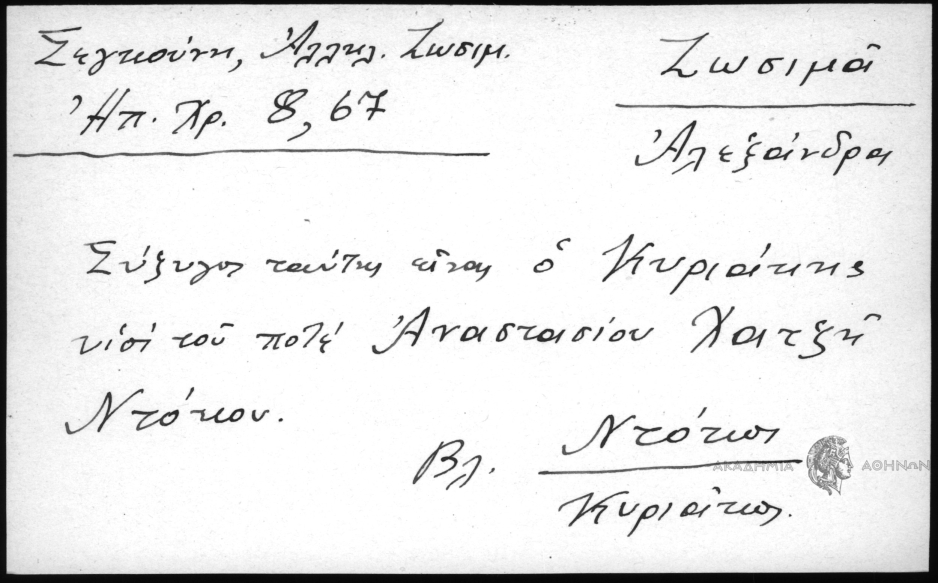 Σεγκούνη, Ἀλληλ. Ζωσιμ.
Ἠπ. Χρ. 8, 67
Ζωσιμᾶ
Ἀλεξάνδρα
Σύζυγος ταύτης εἶναι ὁ Κυριάκης
υἱὸς τοῦ ποτὲ Ἀναστασίου Χατζῆ
Ντόκου.
Βλ. Ντόκος
Κυριάκος.
ΑΚΑΔΗΜΙΑ ΑΘΗΝΩΝ